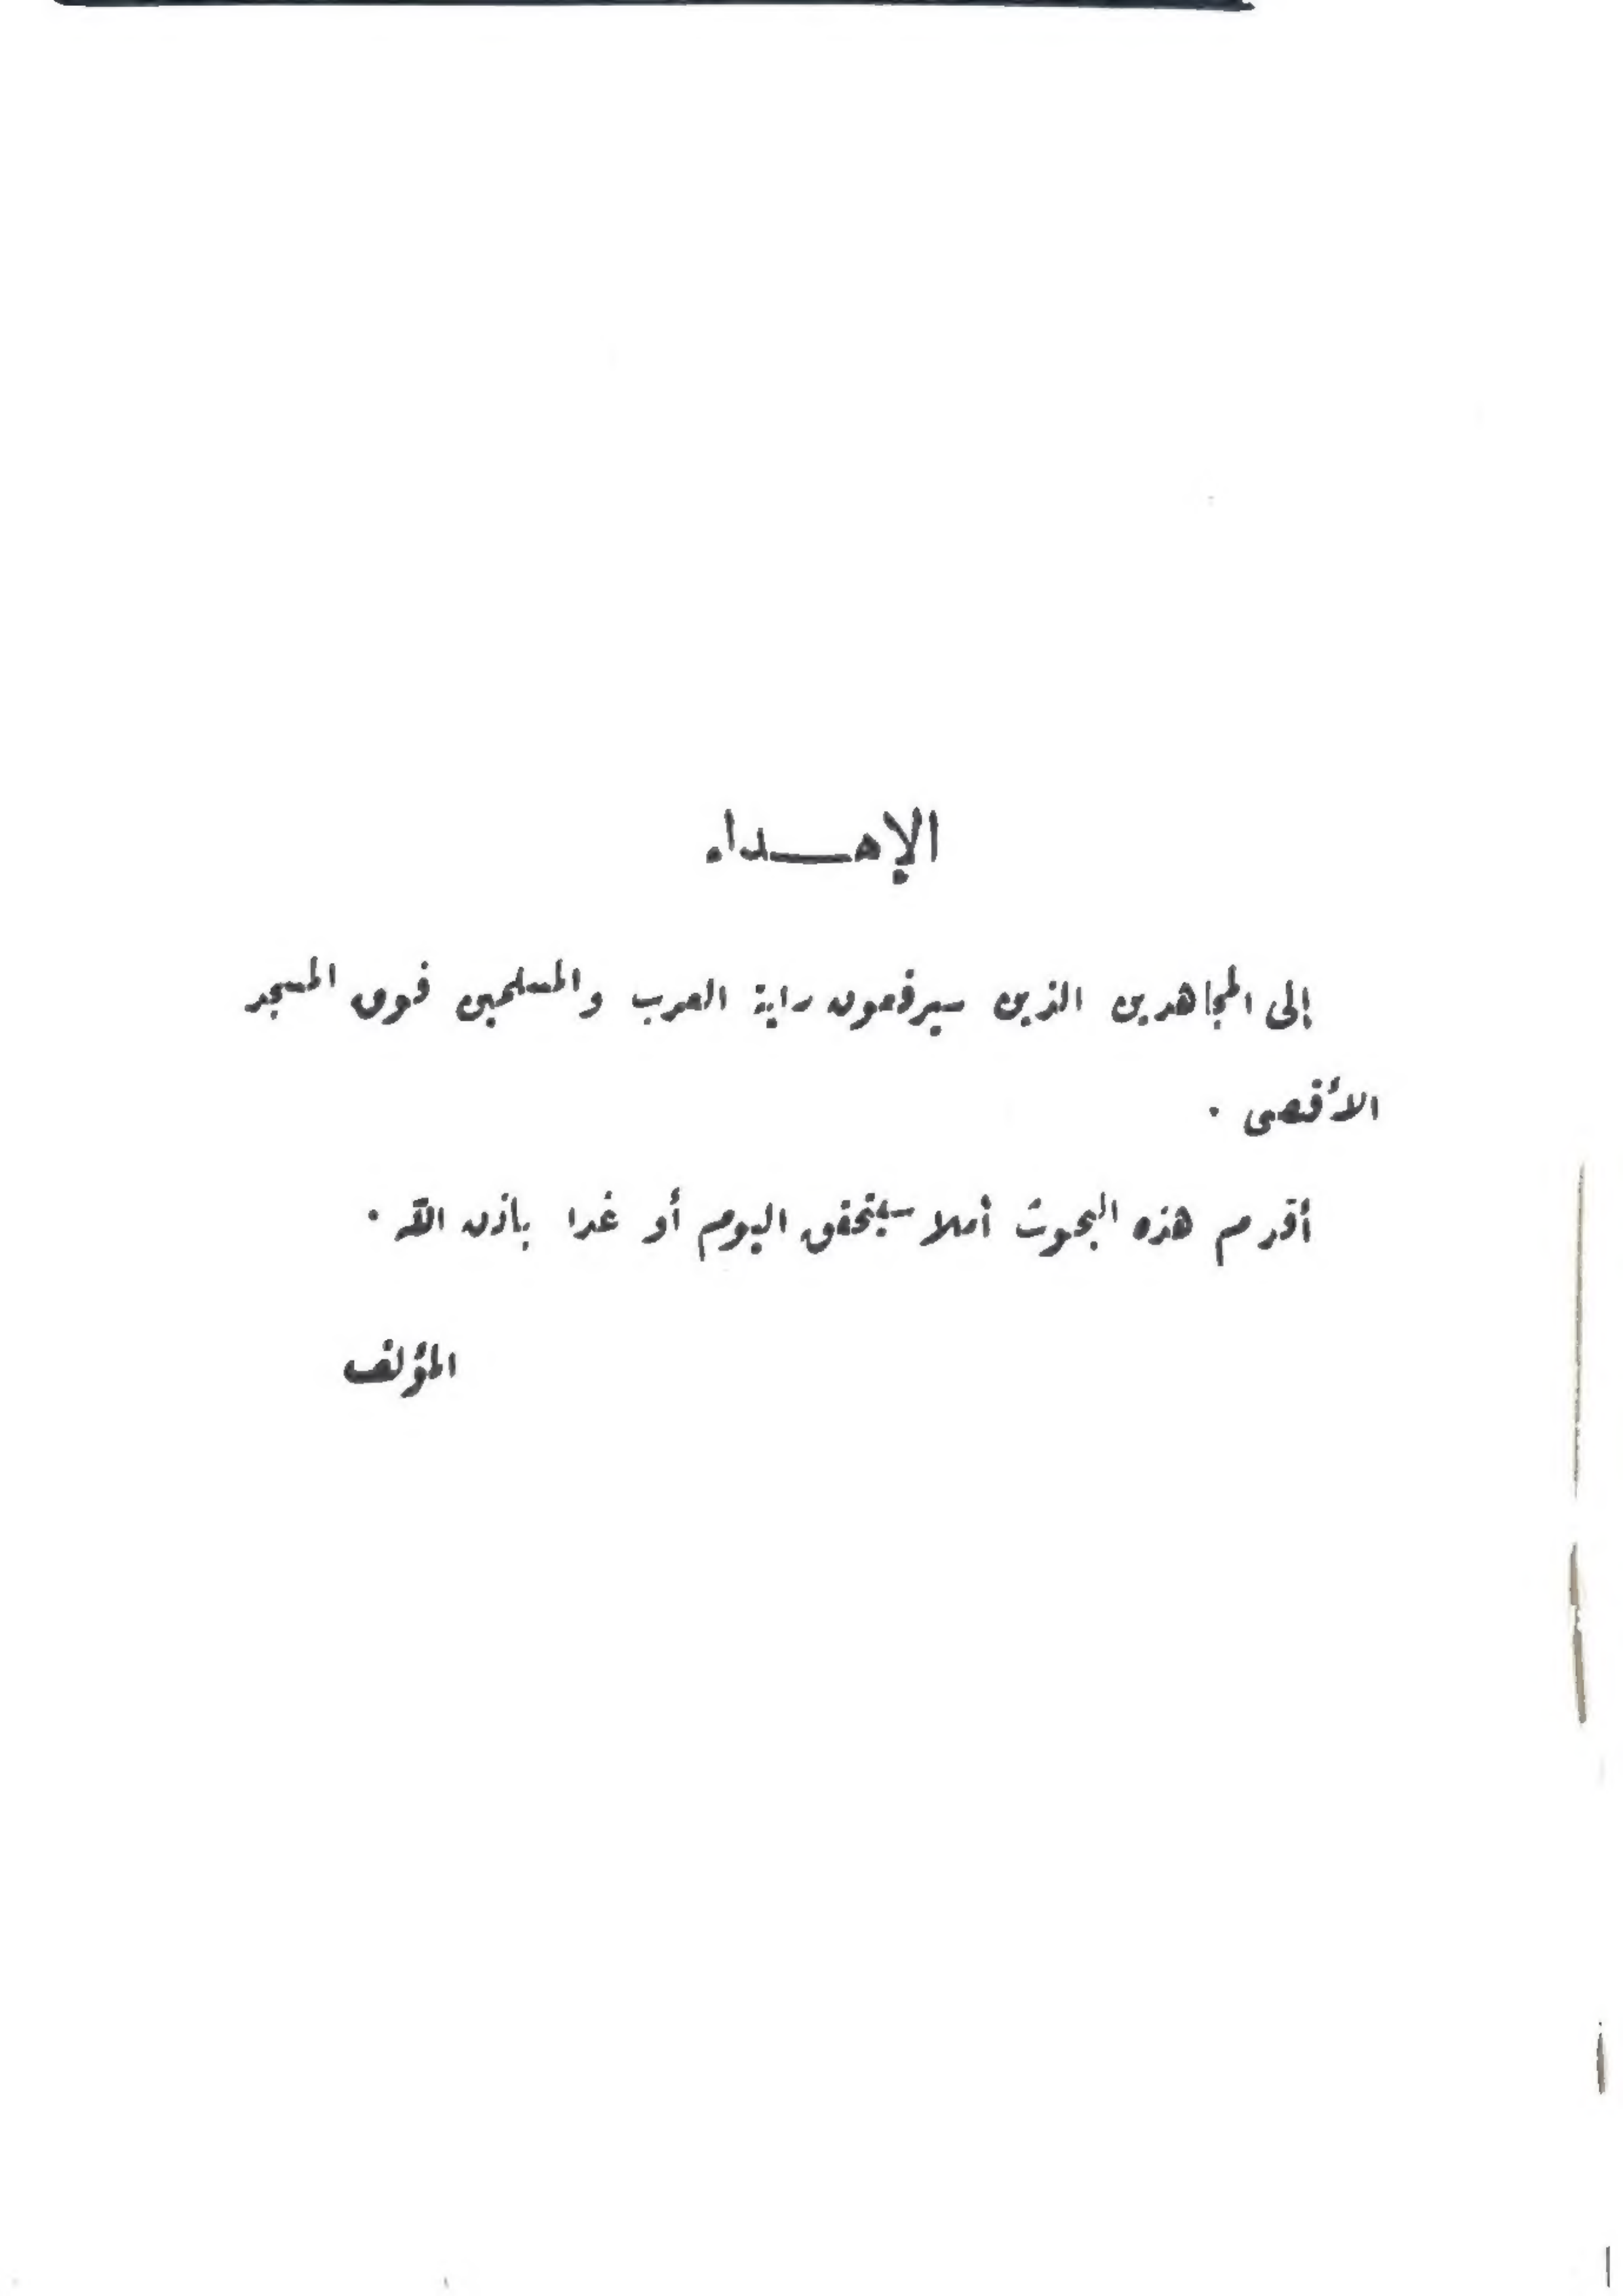 الإهــداء
إلى المجاهدين الذين سيرفعون راية العرب والمسلمين فوق المسجد
الأقصى .
أقدم هذه البحوث أملا سيتحقق اليوم أو غدا باذن الله .
المؤلف